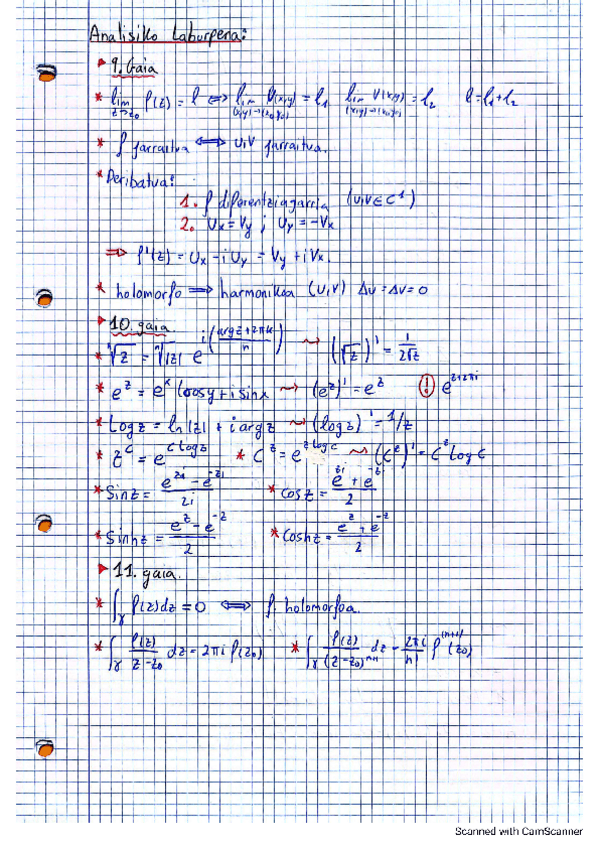 Analisiko laburpena:
▸ 9. Gaia
* lim_{z→z₀} f(z) = l ⟺ lim_{(x,y)→(x₀,y₀)} U(x,y) = l₁ lim_{(x,y)→(x₀,y₀)} V(x,y) = l₂ l = l₁ + l₂
* f jarraitua ⟺ u,v jarraitua.
* Deribatua:
1. f diferentziagarria (u,v ∈ C¹)
2. Ux = Vy ; Uy = -Vx
⟹ f'(z) = Ux - i Uy = Vy + i Vx.
* holomorfo ⟹ harmonikoa (u,v) Δu = Δv = 0
▸ 10. gaia
* ⁿ√z = ⁿ√|z| e^{i((arg z + 2πk)/n)} ⤳ (√z)' = 1/(2√z)
* e^z = e^x (cos y + i sin x ⤳ (e^z)' = e^z (!) e^{z+2πi}
* Log z = ln|z| + i arg z ⤳ (log z)' = 1/z
* z^c = e^{c log z} * c^z = e^{z log c} ⤳ (c^z)' = c^z log c
* Sin z = (e^{zi} - e^{-zi})/2i * cos z = (e^{zi} + e^{-zi})/2
* Sinh z = (e^z - e^{-z})/2 * cosh z = (e^z + e^{-z})/2
▸ 11. gaia.
* ∫_γ f(z) dz = 0 ⟺ f. holomorfoa.
* ∫_γ f(z)/(z - z₀) dz = 2πi f(z₀) * ∫_γ f(z)/(z - z₀)^{n+1} dz = 2πi/n! f^{(n+1)}(z₀)
Scanned with CamScanner